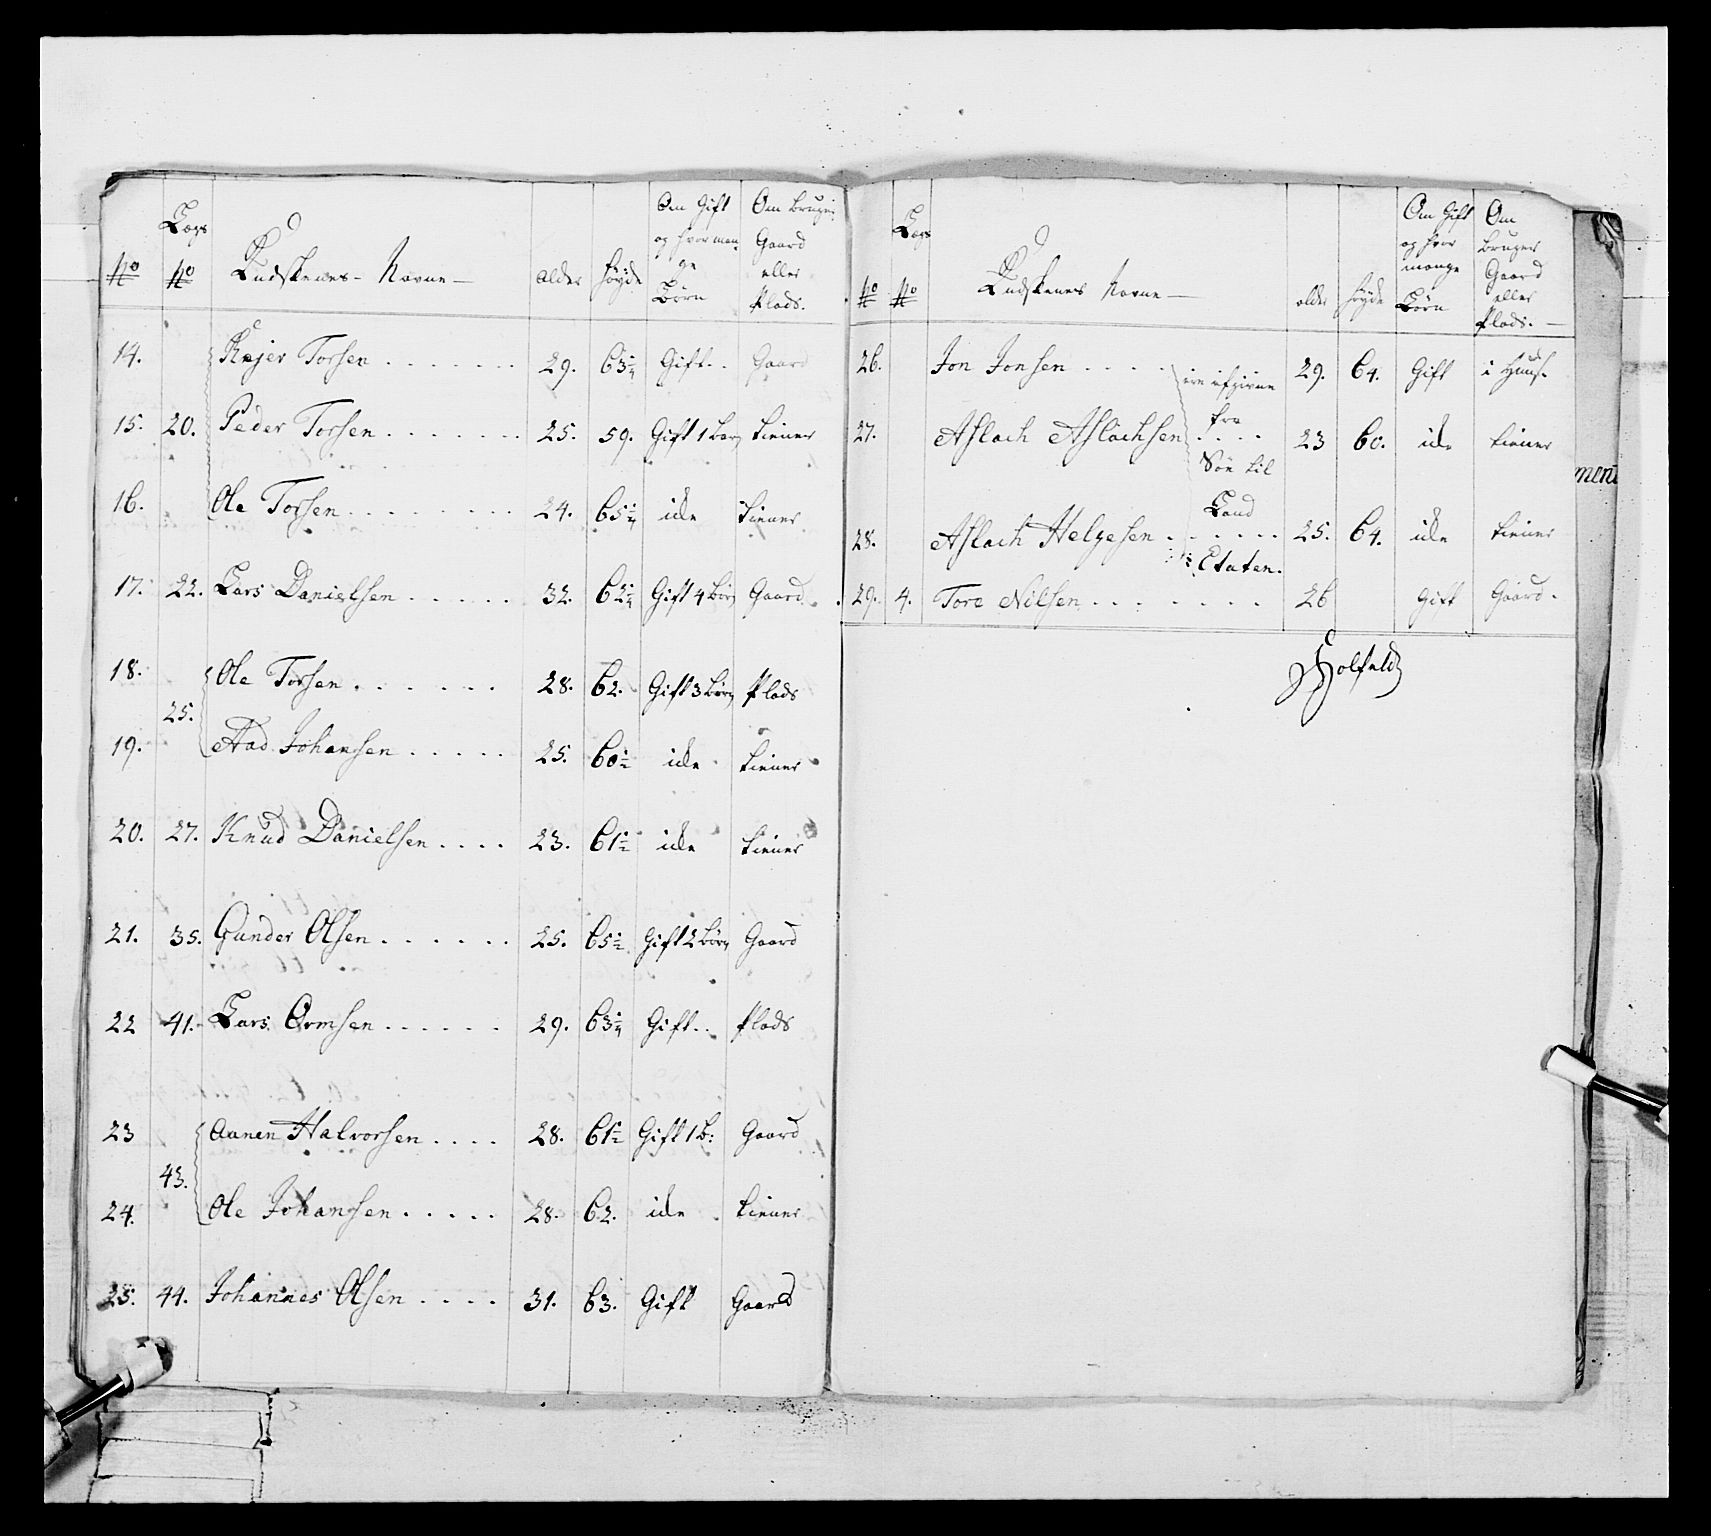 No Lægs No Kudskenes Navne alder høyde Om Gift og hvor mange Børn Om bruger Gaard eller Plads.
14. Rejer Torsen 29. 63 1/4 Gift Gaard
15. 20. Peder Torsen 25. 59. Gift 1 barn tiener
16. Ole Torsen 24. 65 1/4 ide tiener
17. 22. Lars Danielsen 32. 62 1/4 Gift 4 Børn Gaard
18. Ole Torsen 28. 62. Gift 3 Børn Plads
25.
19. Aad Johansen 25. 60 1/2 ide tiener
20. 27. Knud Danielsen 23. 61 1/2 ide tiener
21. 35. Gunder Olsen 25. 65 1/2 Gift 2 børn Gaard
22 41. Lars Ormsen 29. 63 1/4 Gift Plads
23 Aanen Halvorsen 28. 61 1/2 Gift 1 b: Gaard
43.
24. Ole Johansen 28. 62. ide tiener
25. 44. Johannes Olsen 31. 63. Gift Gaard
No Lægs No Kudskenes Navne alder høyde Om Gift og hvor mange Børn Om bruger Gaard eller Plads.
26. Jon Jonsen 29. 64. Gift i Huus.
27. Aslach Aslachsen 23 60. ide tiener
28. Aslach Helgesen 25. 64. ide tiener
ere afgivne
fra
Søe til
Land
Etaten.
29. 4. Tore Nilsen 26 Gift Gaard.
Holfeldt
ment